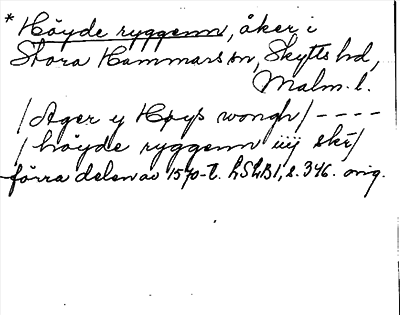 * Höyde ryggenn, åker i
Stora Hammars sn, Skytts hd,
Malm. l.
/Ager y Høys wongh/ ----
/höyde ryggenn iiij skr/
förra delen av 1570-t. LSLB1, s. 346. orig.